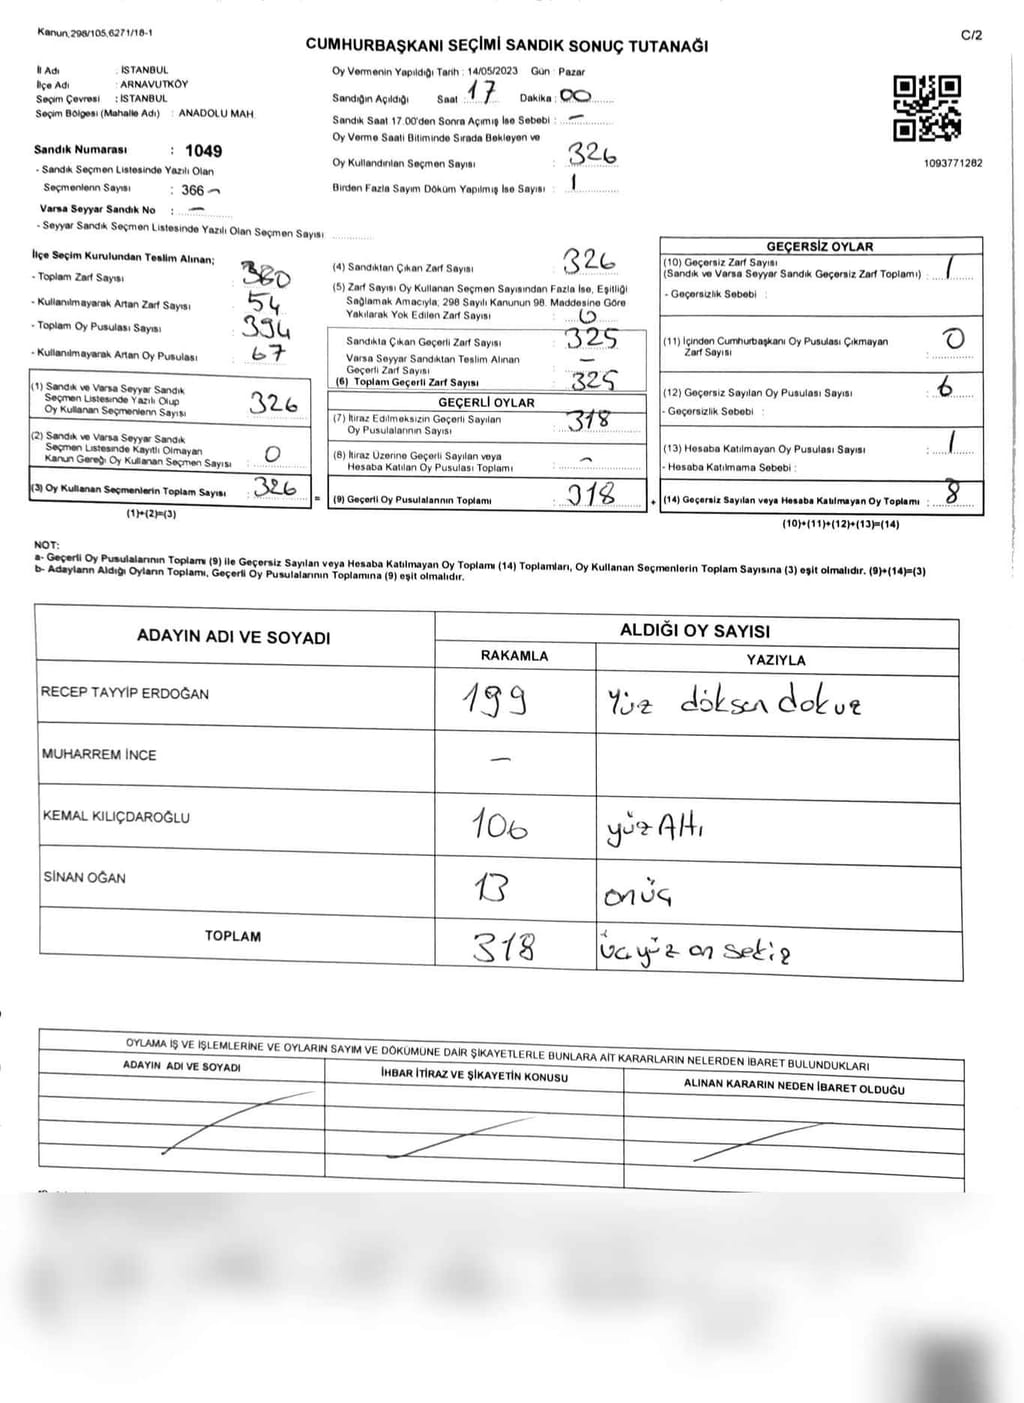 Kanun, 298/105,6271/18-1
C/2
CUMHURBAŞKANI SEÇİMİ SANDIK SONUÇ TUTANAĞI
İl Adı : İSTANBUL
İlçe Adı : ARNAVUTKÖY
Seçim Çevresi : İSTANBUL
Seçim Bölgesi (Mahalle Adı) : ANADOLU MAH.
Sandık Numarası : 1049
- Sandık Seçmen Listesinde Yazılı Olan
Seçmenlerin Sayısı : 366
Varsa Seyyar Sandık No : —
- Seyyar Sandık Seçmen Listesinde Yazılı Olan Seçmen Sayısı
Oy Vermenin Yapıldığı Tarih : 14/05/2023 Gün : Pazar
Sandığın Açıldığı Saat : 17 Dakika : 00
Sandık Saat 17.00'den Sonra Açımış İse Sebebi : —
Oy Verme Saati Bitiminde Sırada Bekleyen ve
Oy Kullandırılan Seçmen Sayısı : 326
Birden Fazla Sayım Döküm Yapılmış İse Sayısı : 1
1093771282
İlçe Seçim Kurulundan Teslim Alınan;
- Toplam Zarf Sayısı : 380
- Kullanılmayarak Artan Zarf Sayısı : 54
- Toplam Oy Pusulası Sayısı : 394
- Kullanılmayarak Artan Oy Pusulası : 67
(1) Sandık ve Varsa Seyyar Sandık
Seçmen Listesinde Yazılı Olup
Oy Kullanan Seçmenlerin Sayısı : 326
(2) Sandık ve Varsa Seyyar Sandık
Seçmen Listesinde Kayıtlı Olmayan
Kanun Gereği Oy Kullanan Seçmen Sayısı : 0
(3) Oy Kullanan Seçmenlerin Toplam Sayısı : 326
(1)+(2)=(3)
(4) Sandıktan Çıkan Zarf Sayısı : 326
(5) Zarf Sayısı Oy Kullanan Seçmen Sayısından Fazla İse, Eşitliği
Sağlamak Amacıyla, 298 Sayılı Kanunun 98. Maddesine Göre
Yakılarak Yok Edilen Zarf Sayısı : 0
Sandıkta Çıkan Geçerli Zarf Sayısı : 325
Varsa Seyyar Sandıktan Teslim Alınan
Geçerli Zarf Sayısı : —
(6) Toplam Geçerli Zarf Sayısı : 325
GEÇERLİ OYLAR
(7) İtiraz Edilmeksizin Geçerli Sayılan
Oy Pusulalarının Sayısı : 318
(8) İtiraz Üzerine Geçerli Sayılan veya
Hesaba Katılan Oy Pusulası Toplamı : —
(9) Geçerli Oy Pusulalarının Toplamı : 318
GEÇERSİZ OYLAR
(10) Geçersiz Zarf Sayısı
(Sandık ve Varsa Seyyar Sandık Geçersiz Zarf Toplamı) : 1
- Geçersizlik Sebebi :
(11) İçinden Cumhurbaşkanı Oy Pusulası Çıkmayan
Zarf Sayısı : 0
(12) Geçersiz Sayılan Oy Pusulası Sayısı : 6
- Geçersizlik Sebebi :
(13) Hesaba Katılmayan Oy Pusulası Sayısı : 1
- Hesaba Katılmama Sebebi :
= + (14) Geçersiz Sayılan veya Hesaba Katılmayan Oy Toplamı : 8
(10)+(11)+(12)+(13)=(14)
NOT:
a- Geçerli Oy Pusulalarının Toplamı (9) ile Geçersiz Sayılan veya Hesaba Katılmayan Oy Toplamı (14) Toplamları, Oy Kullanan Seçmenlerin Toplam Sayısına (3) eşit olmalıdır. (9)+(14)=(3)
b- Adayların Aldığı Oyların Toplamı, Geçerli Oy Pusulalarının Toplamına (9) eşit olmalıdır.
ADAYIN ADI VE SOYADI
ALDIĞI OY SAYISI
RAKAMLA YAZIYLA
RECEP TAYYİP ERDOĞAN 199 Yüz döksen dokuz
MUHARREM İNCE —
KEMAL KILIÇDAROĞLU 106 yüz Altı
SİNAN OĞAN 13 onüç
TOPLAM 318 üçyüz on sekiz
OYLAMA İŞ VE İŞLEMLERİNE VE OYLARIN SAYIM VE DÖKÜMÜNE DAİR ŞİKAYETLERLE BUNLARA AİT KARARLARIN NELERDEN İBARET BULUNDUKLARI
ADAYIN ADI VE SOYADI İHBAR İTİRAZ VE ŞİKAYETİN KONUSU ALINAN KARARIN NEDEN İBARET OLDUĞU